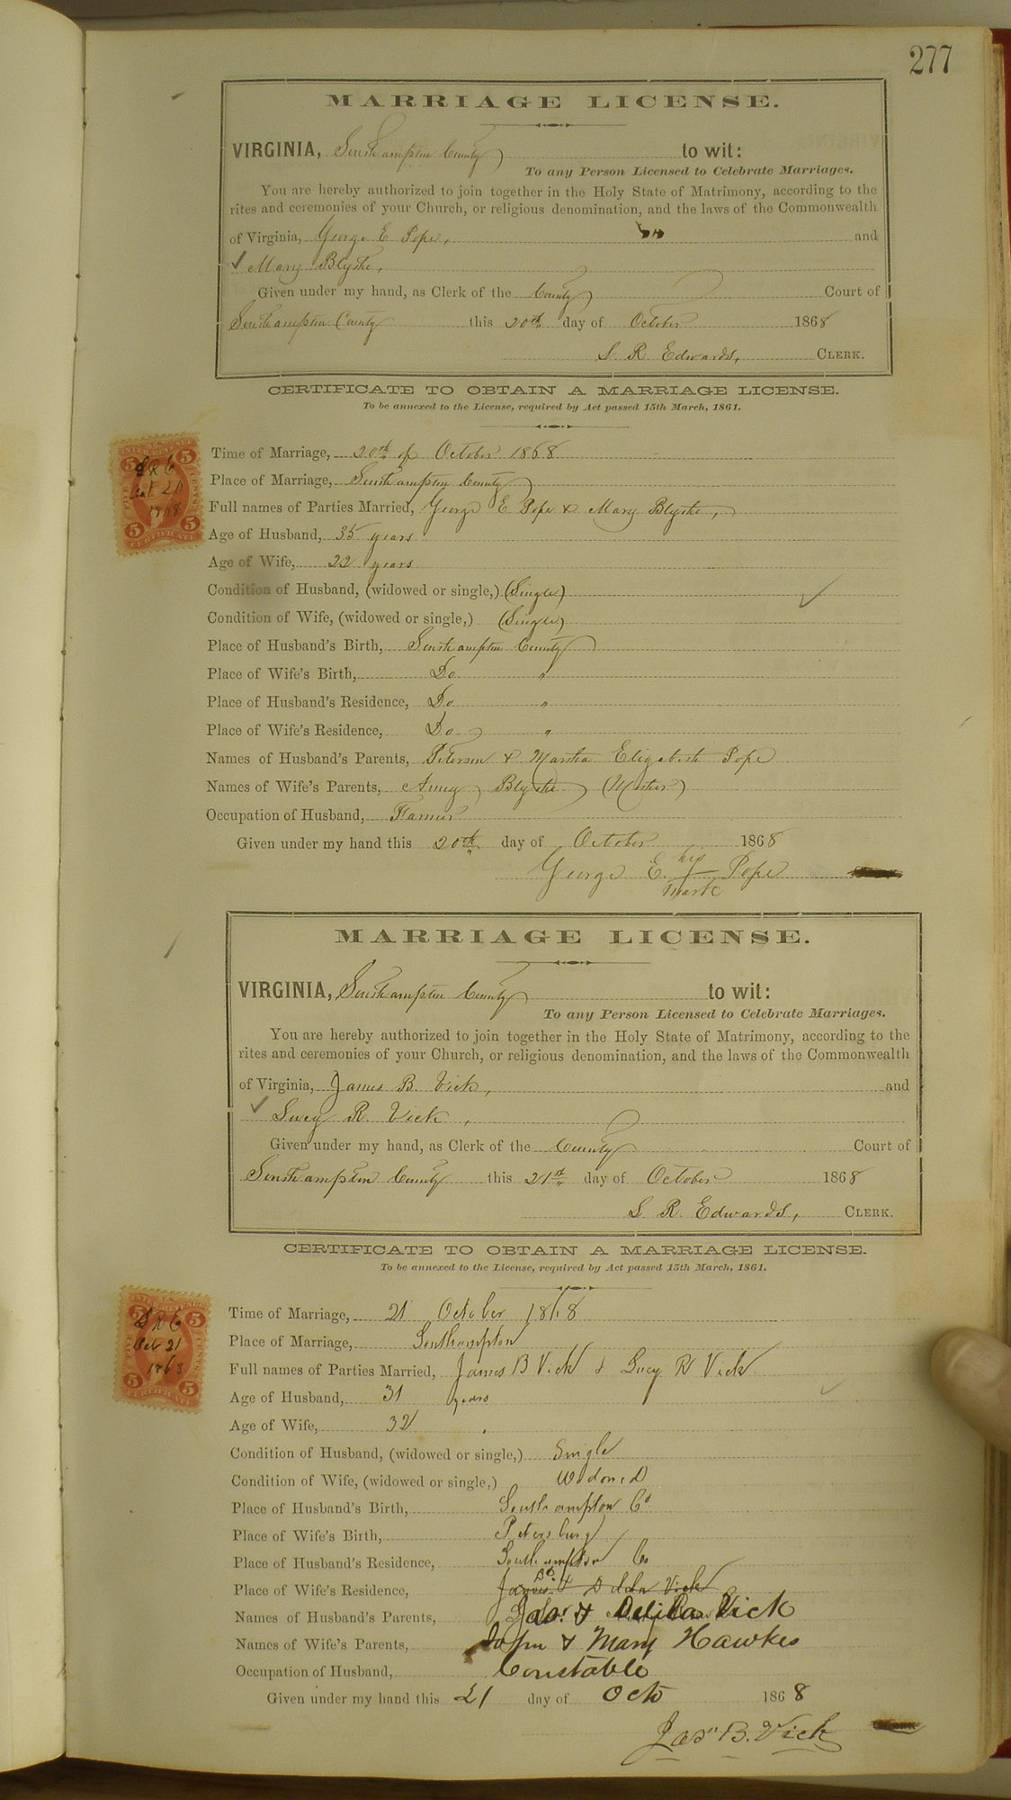 277
MARRIAGE LICENSE.
VIRGINIA, Southampton County to wit:
To any Person Licensed to Celebrate Marriages.
You are hereby authorized to join together in the Holy State of Matrimony, according to the
rites and ceremonies of your Church, or religious denomination, and the laws of the Commonwealth
of Virginia, George E Pope, and
Mary Blythe,
Given under my hand, as Clerk of the County Court of
Southampton County this 20th day of October 1868
L. R. Edwards, CLERK.
CERTIFICATE TO OBTAIN A MARRIAGE LICENSE.
To be annexed to the License, required by Act passed 15th March, 1861.
Time of Marriage, 20th of October 1868
Place of Marriage, Southampton County
Full names of Parties Married, George E Pope & Mary Blythe,
Age of Husband, 35 years
Age of Wife, 22 years
Condition of Husband, (widowed or single,) (Single)
Condition of Wife, (widowed or single,) (Single)
Place of Husband's Birth, Southampton County
Place of Wife's Birth, Do "
Place of Husband's Residence, Do "
Place of Wife's Residence, Do "
Names of Husband's Parents, Peterson & Martha Elizabeth Pope
Names of Wife's Parents, Amey Blythe (Mother)
Occupation of Husband, Farmer
Given under my hand this 20th day of October 1868
George E. his mark Pope
5 5
LRE
Oct 20
1868
5 5
CERTIFICATE
MARRIAGE LICENSE.
VIRGINIA, Southampton County to wit:
To any Person Licensed to Celebrate Marriages.
You are hereby authorized to join together in the Holy State of Matrimony, according to the
rites and ceremonies of your Church, or religious denomination, and the laws of the Commonwealth
of Virginia, James B. Vick, and
Lucy R Vick,
Given under my hand, as Clerk of the County Court of
Southampton County this 21st day of October 1868
L. R. Edwards, CLERK.
CERTIFICATE TO OBTAIN A MARRIAGE LICENSE.
To be annexed to the License, required by Act passed 15th March, 1861.
Time of Marriage, 21 October 1868
Place of Marriage, Southampton
Full names of Parties Married, James B Vick & Lucy R Vick
Age of Husband, 31 years
Age of Wife, 32 "
Condition of Husband, (widowed or single,) Single
Condition of Wife, (widowed or single,) Widowed
Place of Husband's Birth, Southampton Co
Place of Wife's Birth, Petersburg
Place of Husband's Residence, Southampton Co
Place of Wife's Residence, Do.
Names of Husband's Parents, Jas. & Delila Vick
Names of Wife's Parents, John & Mary Hawkes
Occupation of Husband, Constable
Given under my hand this 21 day of Octo 1868
Jas B. Vick
5 5
LRE
Oct 21
1868
5 5
CERTIFICATE